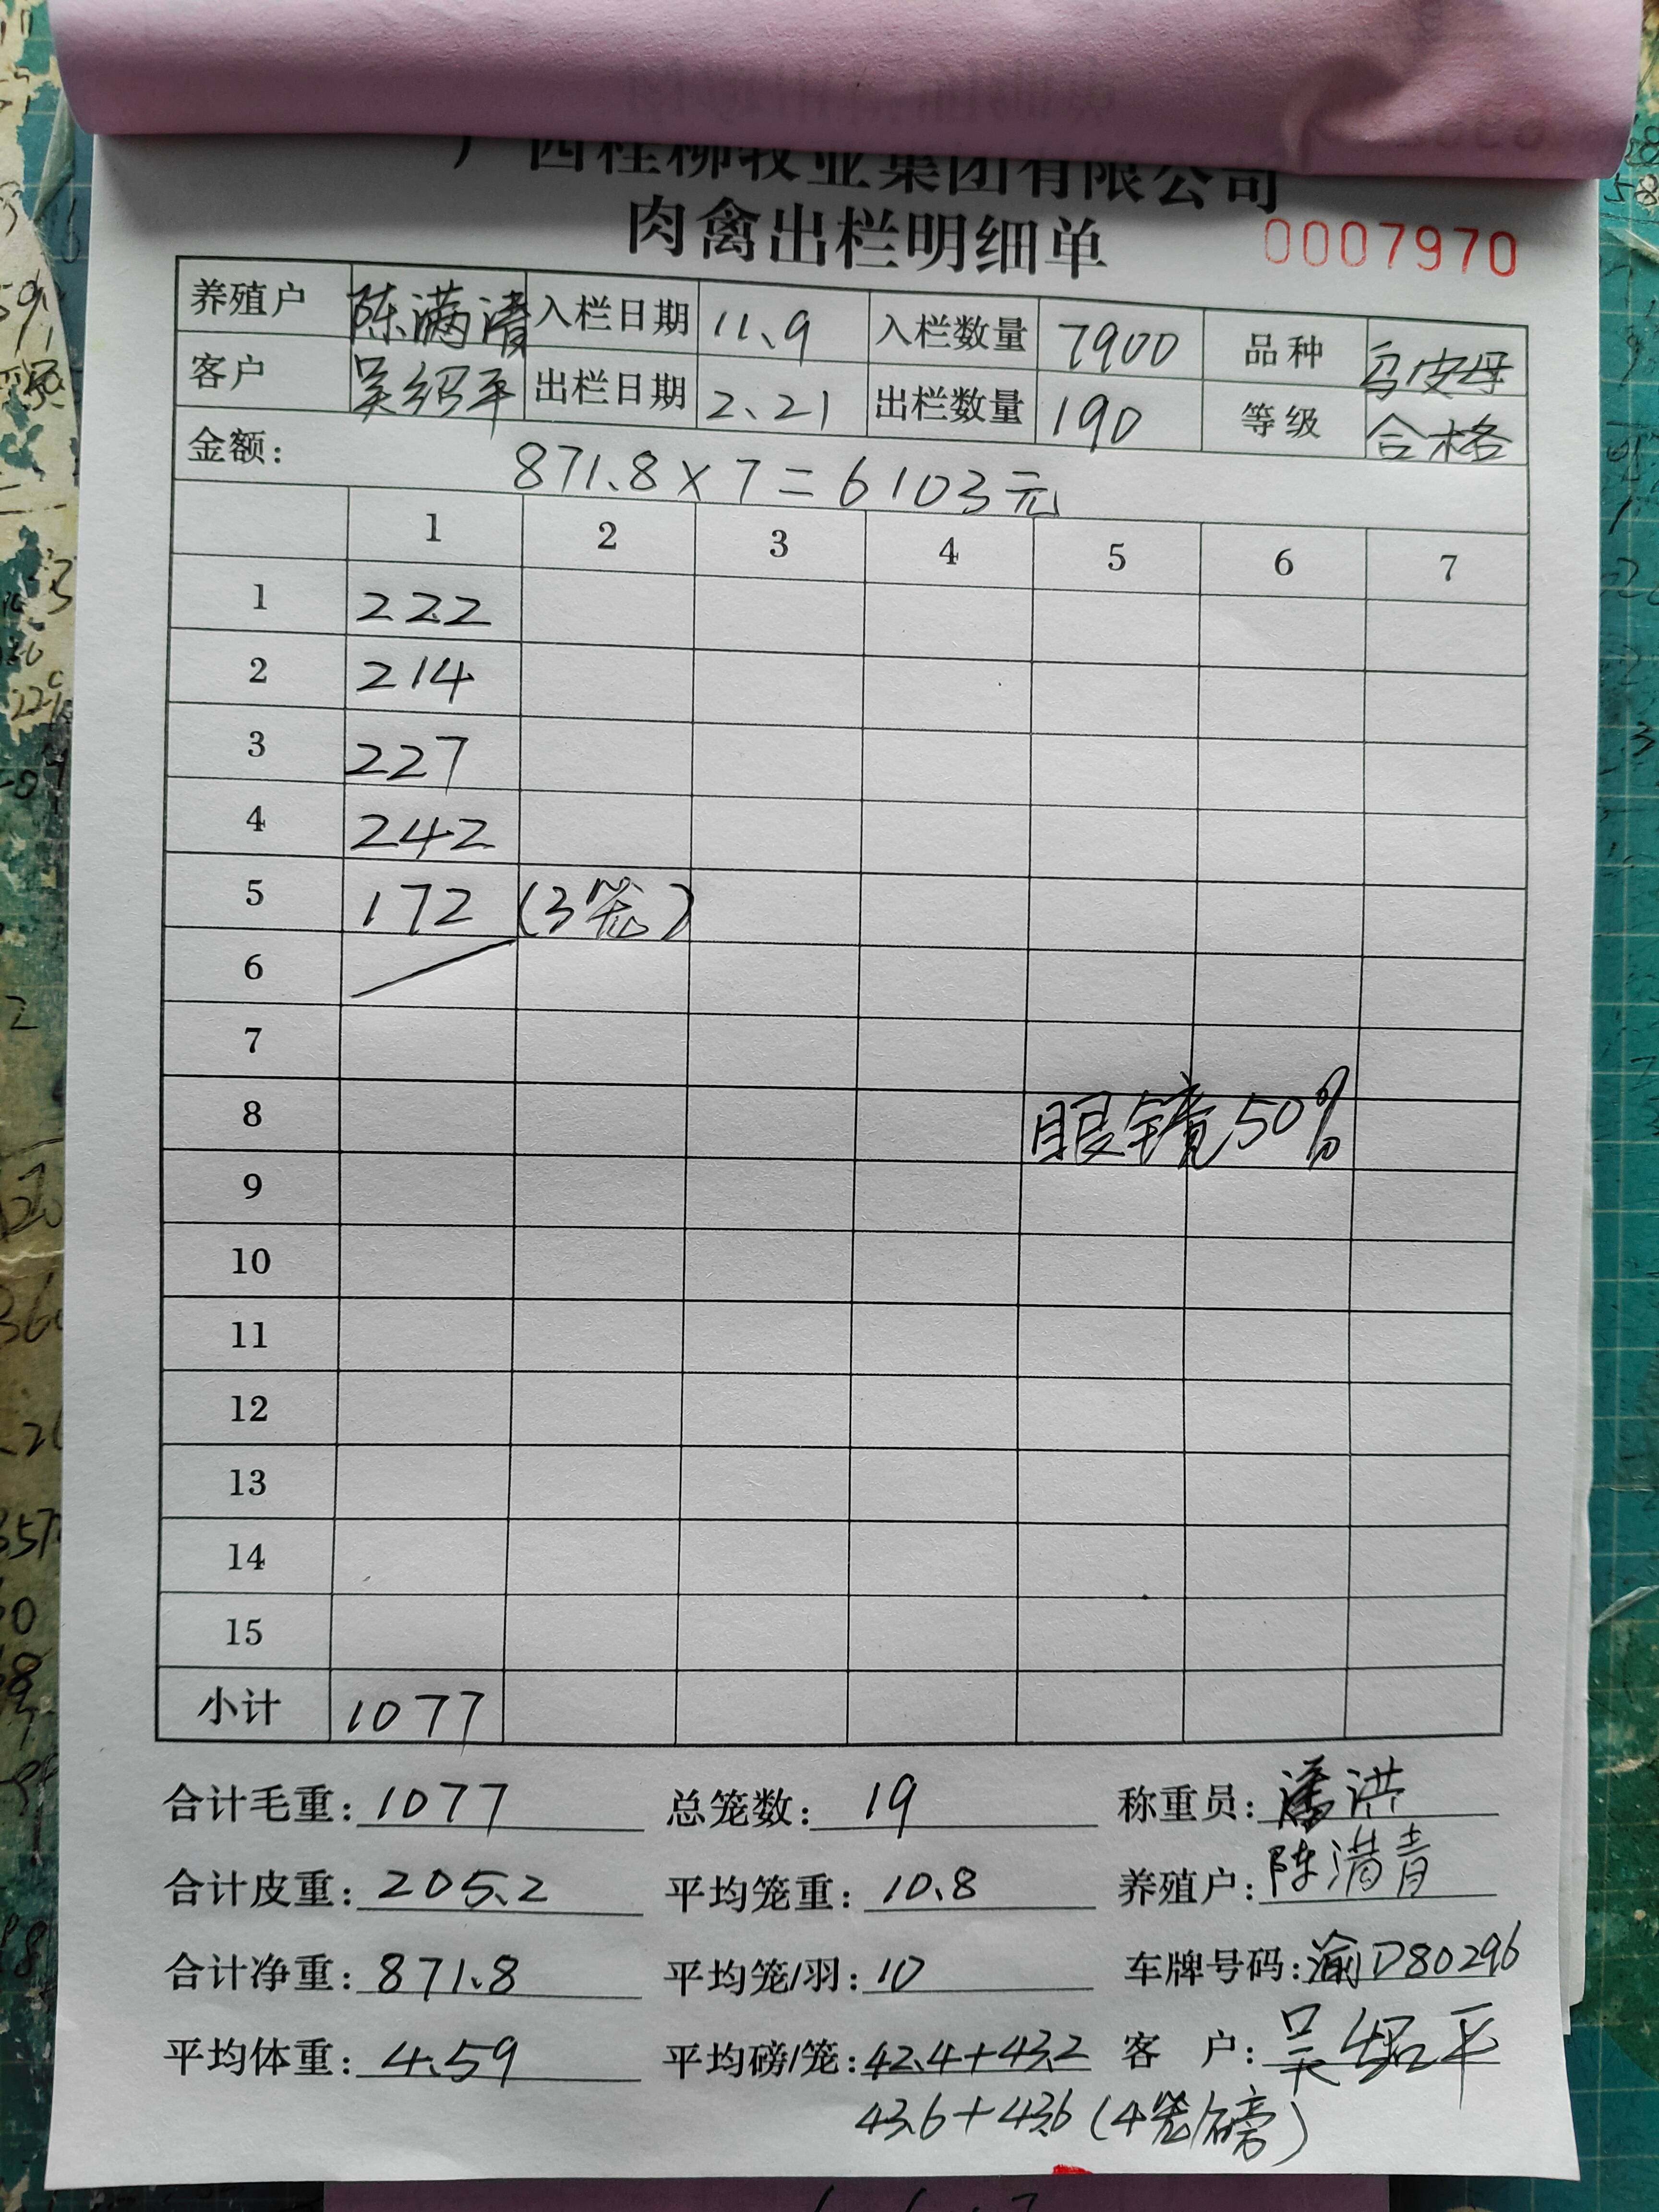 广西桂柳牧业集团有限公司
肉禽出栏明细单 0007970
养殖户 陈满清 入栏日期 11.9 入栏数量 7900 品种 乌皮母
客户 吴绍平 出栏日期 2.21 出栏数量 190 等级 合格
金额: 871.8×7=6103元
1 2 3 4 5 6 7
1 222
2 214
3 227
4 242
5 172 (3笼)
6
7
8 眼镜50%
9
10
11
12
13
14
15
小计 1077
合计毛重: 1077 总笼数: 19 称重员: 潘洪
合计皮重: 205.2 平均笼重: 10.8 养殖户: 陈满青
合计净重: 871.8 平均笼/羽: 10 车牌号码: 渝D80296
平均体重: 4.59 平均磅/笼: 42.4+43.2 客户: 吴绍平
43.6+43.6(4笼/磅)